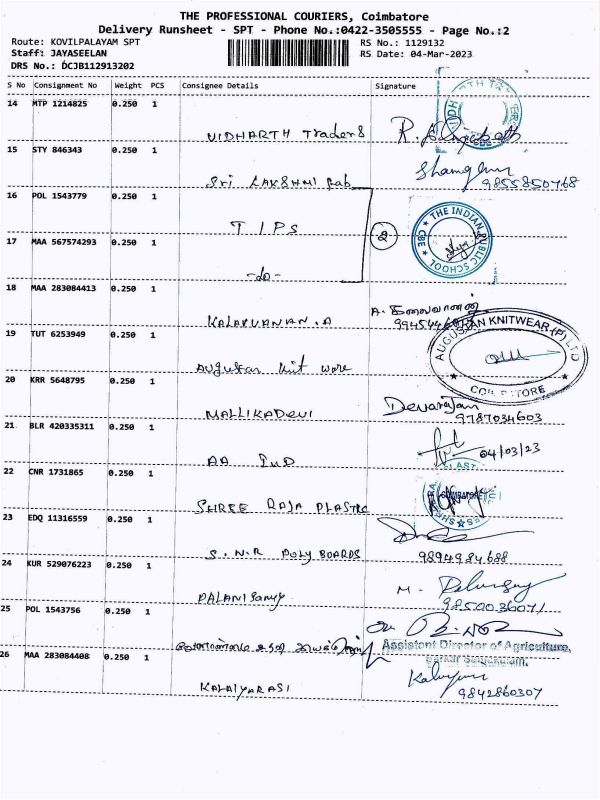 THE PROFESSIONAL COURIERS, Coimbatore
Delivery Runsheet - SPT - Phone No.:0422-3505555 - Page No.:2
Route: KOVILPALAYAM SPT RS No.: 1129132
Staff: JAYASEELAN RS Date: 04-Mar-2023
DRS No.: DCJB112913202
S No Consignment No Weight PCS Consignee Details Signature
14 MTP 1214825 0.250 1
VIDHARTH Traders
15 STY 846343 0.250 1
Sri LAKSHMI Fab 9855850768
16 POL 1543779 0.250 1
TIPS 2 THE INDIAN PUBLIC SCHOOL CBE
17 MAA 567574293 0.250 1
-do-
18 MAA 283084413 0.250 1
KALAIVANAN.A A. கலைவாணன்
19 TUT 6253949 0.250 1 AUGUSTAN KNITWEAR (P) LTD
Augustan knit ware COIMBATORE
20 KRR 5648795 0.250 1
MALLIKADEVI Devarajan 9787034603
21 BLR 420335311 0.250 1
AA IND 04/03/23
22 CNR 1731865 0.250 1
SHREE RAJA PLASTIC
23 EDQ 11316559 0.250 1
S.N.R POLY BOARDS 9894984688
24 KUR 529076223 0.250 1
PALANISAMY 9850036071
25 POL 1543756 0.250 1
Assistant Director of Agriculture,
26 MAA 283084408 0.250 1
KALAIYARASI 9842860307